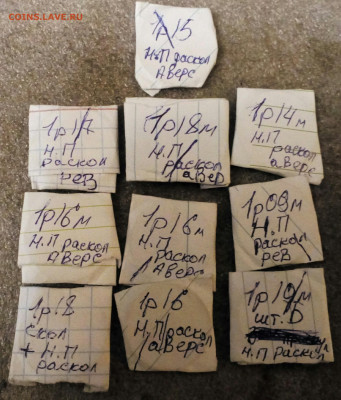 COINS.LAVE.RU
1р15
Н.П раскол
Аверс
1р17
Н.П
раскол
рев
1р18м
Н.П
раскол
авер
1р14м
Н.П
раскол
аверс
1р16м
Н.П раскол
Аверс
1р16м
Н.П
раскол
Аверс
1р09м
Н.П
Раскол
рев
1р18
Скол
+ Н.П
раскол
1р16
Н.П раскол
аверс
1р10м
шт.
Н.П раскол